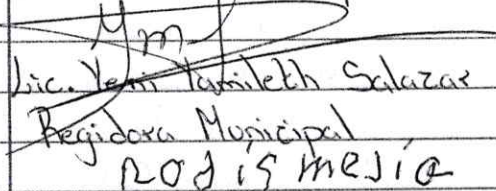 Lic. Yeni Yamileth Salazar
Regidora Municipal
Rodis mesia